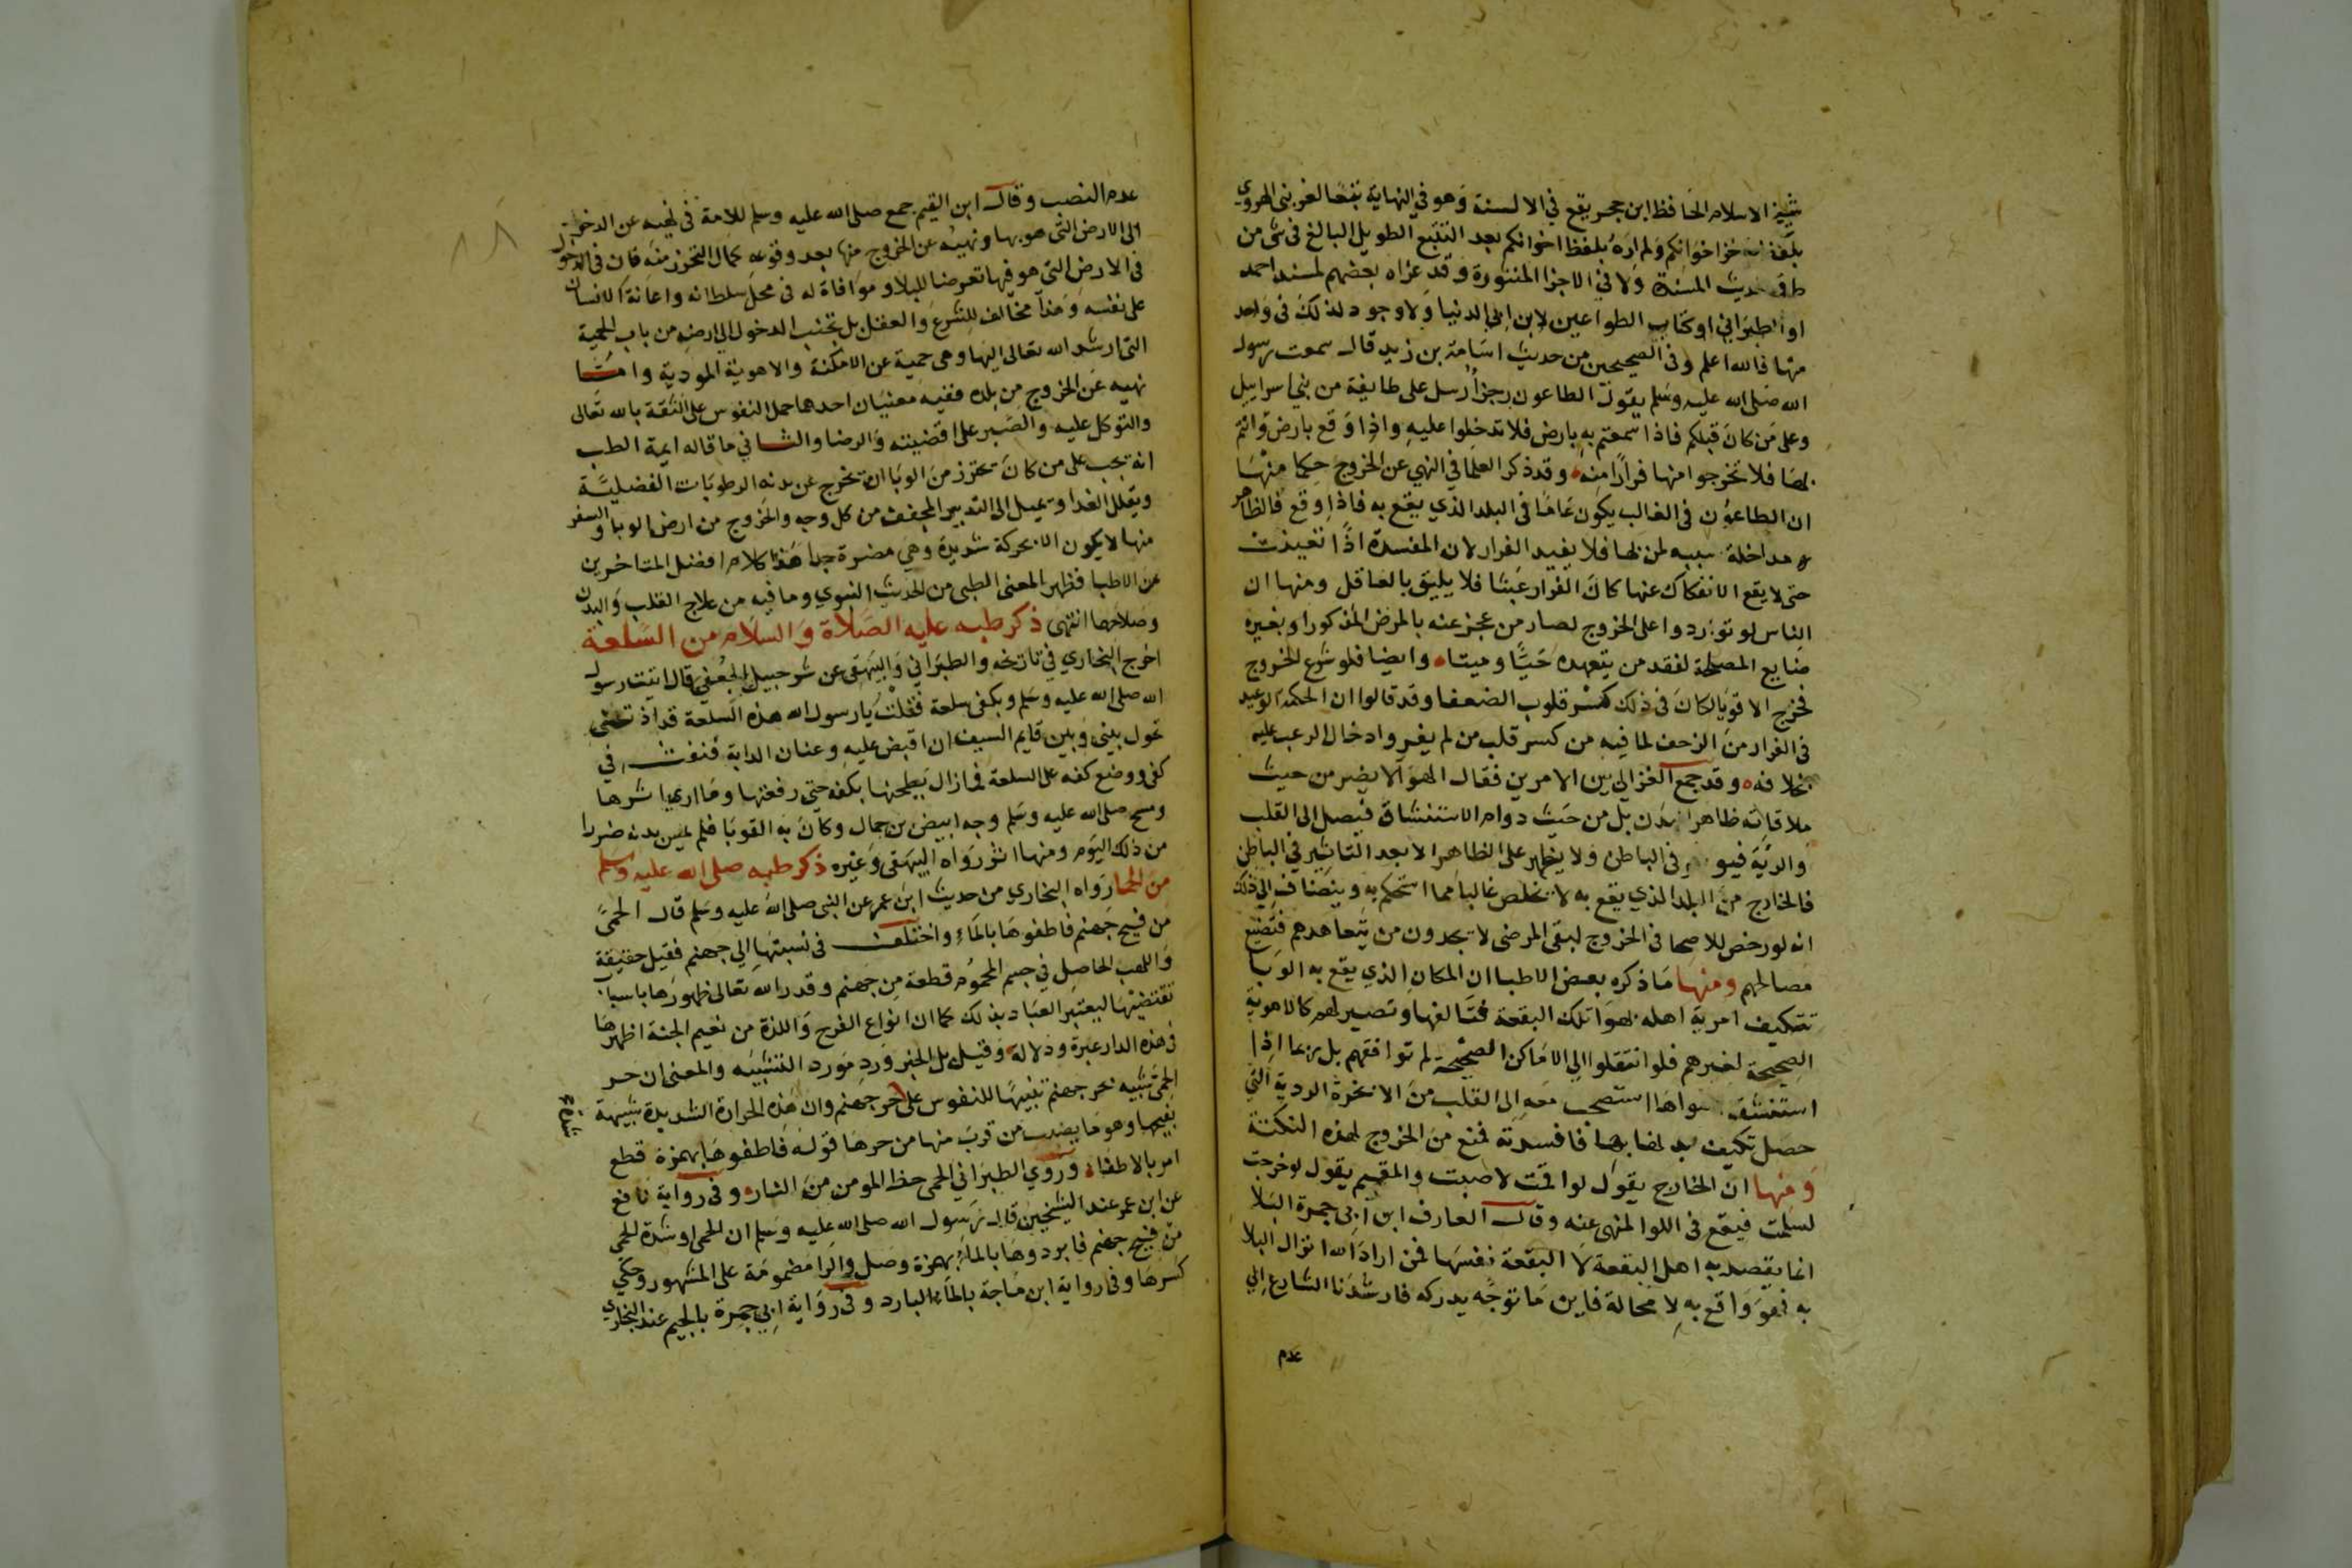 شيخ الاسلام الحافظ ابن حجر يقع في الالسنة وهو في النهاية تبعا لغريبي الهروي
بلفظ وخز اخوانكم ولم اره بلفظ اخوانكم بعد التتبع الطويل البالغ في شي من
طرق حديث المسندة ولا في الاجزا المنثورة وقد عزاه بعضهم لمسند احمد
او الطبراني او كتاب الطواعين لابن ابي الدنيا ولا وجود لذلك في واحد
منها فالله اعلم وفي الصحيحين من حديث اسامة بن زيد قال سمعت رسول
الله صلى الله عليه وسلم يقول الطاعون رجز ارسل على طايفة من بني اسراييل
وعلى من كان قبلكم فاذا سمعتم به بارض فلا تدخلوا عليه واذا وقع بارض وانتم
بها فلا تخرجوا منها فرارا منه وقد ذكر العلما في النهي عن الخروج حكما منها
ان الطاعون في الغالب يكون عاما في البلد الذي يقع به فاذا وقع فالظاهر
مداخلة سببه لمن بها فلا يفيد الفرار لان المفسدة اذا تعينت
حتى لا يقع الانفكاك عنها كان الفرار عبثا فلا يليق بالعاقل ومنها ان
الناس لو تواردوا على الخروج لصار من عجز عنه بالمرض المذكور او بغيره
ضايع المصلحة لفقد من يتعهده حيا وميتا وايضا فلو شرع الخروج
فخرج الاقويا لكان في ذلك كسر قلوب الضعفا وقد قالوا ان الحكمة الوعيد
في الفرار من الزحف لما فيه من كسر قلب من لم يفر وادخال الرعب عليه
بخلافه وقد جمع الغزالي بين الامرين فقال الهوا لا يضر من حيث
ملاقاته ظاهر البدن بل من حيث دوام الاستنشاق فيصل الى القلب
والرية فيوثر في الباطن ولا يظهر على الظاهر الا بعد التاثير في الباطن
فالخارج من البلد الذي يقع به لا يخلص غالبا مما استحكم به وينضاف الى ذلك
انه لو رخص للاصحا في الخروج لبقى المرضى لا يجدون من يتعاهدهم فتضيع
مصالحهم ومنها ما ذكره بعض الاطبا ان المكان الذي يقع به الوبا
تتكيف امزجة اهله بهوا تلك البقعة فتالفها وتصير لهم كالاهوية
الصحيحة لغيرهم فلو انتقلوا الى الاماكن الصحيحة لم توافقهم بل ربما اذا
استنشق هواها استصحب معه الى القلب من الابخرة الردية التي
حصل تكيف بدنه بها فافسدته فمنع من الخروج لهذه النكتة
ومنها ان الخارج يقول لو اقمت لاصبت والمقيم يقول لو خرجت
لسلمت فيقع في اللوا المنهى عنه وقال العارف ابن ابي جمرة البلا
انما يقصد به اهل البقعة لا البقعة نفسها فمن اراد الله انزال البلا
به فهو واقع به لا محالة فاين ما توجه يدركه فارشدنا الشارع الي
عدم
٨٨
عدم النصب وقال ابن القيم جمع صلى الله عليه وسلم للامة في نهيه عن الدخول
الى الارض التي هو بها ونهيه عن الخروج منها بعد وقوعه كمال التحرز منه فان في الدخول
في الارض التي هو فيها تعرضا للبلا وموافاة له في محل سلطانه واعانة الانسان
على نفسه وهذا مخالف للشرع والعقل بل تجنب الدخول الى ارضه من باب الحمية
التي ارشد الله تعالى اليها وهي حمية عن الامكنة والاهوية الموذية واما
نهيه عن الخروج من بلده ففيه معنيان احدهما حمل النفوس على الثقة بالله تعالى
والتوكل عليه والصبر على اقضيته والرضا والثاني ما قاله ايمة الطب
انه يجب على من كان يحترز من الوبا ان يخرج عن بدنه الرطوبات الفضلية
ويقلل الغذا ويميل الى التدبير المجفف من كل وجه والخروج من ارض الوبا والسفر
منها لا يكون الا بحركة شديدة وهي مضرة جدا هذا كلام افضل المتاخرين
من الاطبا فظهر المعنى الطبي من الحديث النبوي وما فيه من علاج القلب والبدن
وصلاحهما انتهى ذكر طبه عليه الصلاة والسلام من السلعة
اخرج البخاري في تاريخه والطبراني والبيهقي عن شرحبيل الجعفي قال اتيت رسول
الله صلى الله عليه وسلم وبكفي سلعة فقلت يا رسول الله هذه السلعة قد اذتني
تحول بيني وبين قايم السيف ان اقبض عليه وعنان الدابة فنفث في
كفي ووضع كفه على السلعة فما زال يطحنها بكفه حتى رفعها وما ارى اثرها
ومسح صلى الله عليه وسلم وجه ابيض بن حمال وكان به القوبا فلم يمس بدنه ضررا
من ذلك اليوم ومنها اثر رواه البيهقي وغيره ذكر طبه صلى الله عليه وسلم
من الحما رواه البخاري من حديث ابن عمر عن النبي صلى الله عليه وسلم قال الحمى
من فيح جهنم فاطفوها بالماء واختلف في نسبتها الى جهنم فقيل حقيقة
واللهب الحاصل في جسم المحموم قطعة من جهنم وقدر الله تعالى ظهورها باسباب
تقتضيها ليعتبر العباد بذلك كما ان انواع الفرح واللذة من نعيم الجنة اظهرها
في هذه الدار عبرة ودلالة وقيل بل الخبر ورد مورد التشبيه والمعنى ان حر
الحمى شبيه بحر جهنم تنبيها للنفوس على حر جهنم وان هذه الحرارة الشديدة شبيهة
بفيحها وهو ما يصيب من قرب منها من حرها قوله فاطفوها بهمزة قطع
امر بالاطفاء وروي الطبراني الحمى حظ المومن من النار وفي رواية نافع
عن ابن عمر عند الشيخين قال رسول الله صلى الله عليه وسلم ان الحمى او شدة الحمى
من فيح جهنم فابردوها بالماء بهمزة وصل والرا مضمومة على المشهور وحكي
كسرها وفي رواية ابن ماجة بالماء البارد وفي رواية ابي جمرة بالجيم عند البخاري